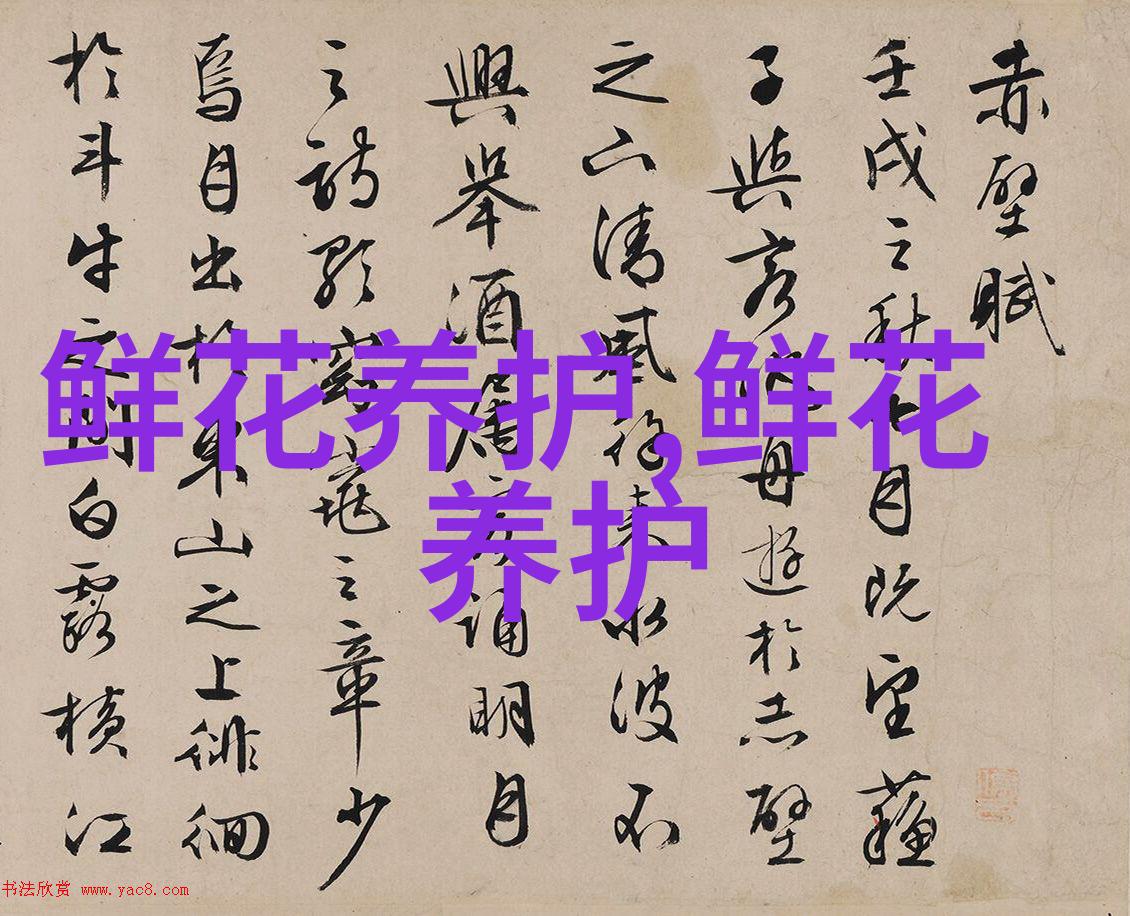 赤壁賦
壬戌之秋七月既望蘇
子與客泛舟遊於赤壁
之下清風徐來水波不
興舉酒屬客誦明月
之詩歌窈窕之章少
焉月出於東山之上徘徊
於斗牛之間白露橫江
鲜花养护,鲜花
养护
书法欣赏 www.yac8.com